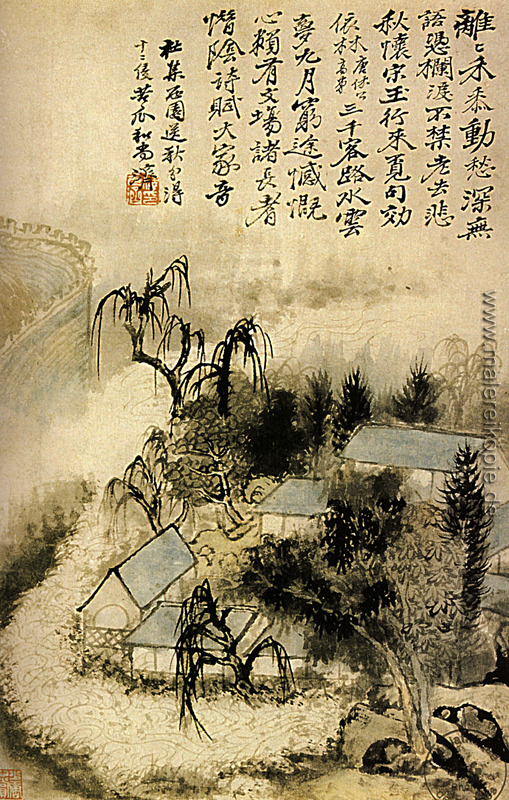 離〻禾黍動愁深無
語憑欄淚不禁老去悲
秋懷宋玉行來覓句效
三千客路水雲
夢九月窮途感慨
心賴有文場諸長者
惜陰詩賦大家音
社集西園送秋分得
十二侵苦瓜和尚濟
www.malereikopie.de